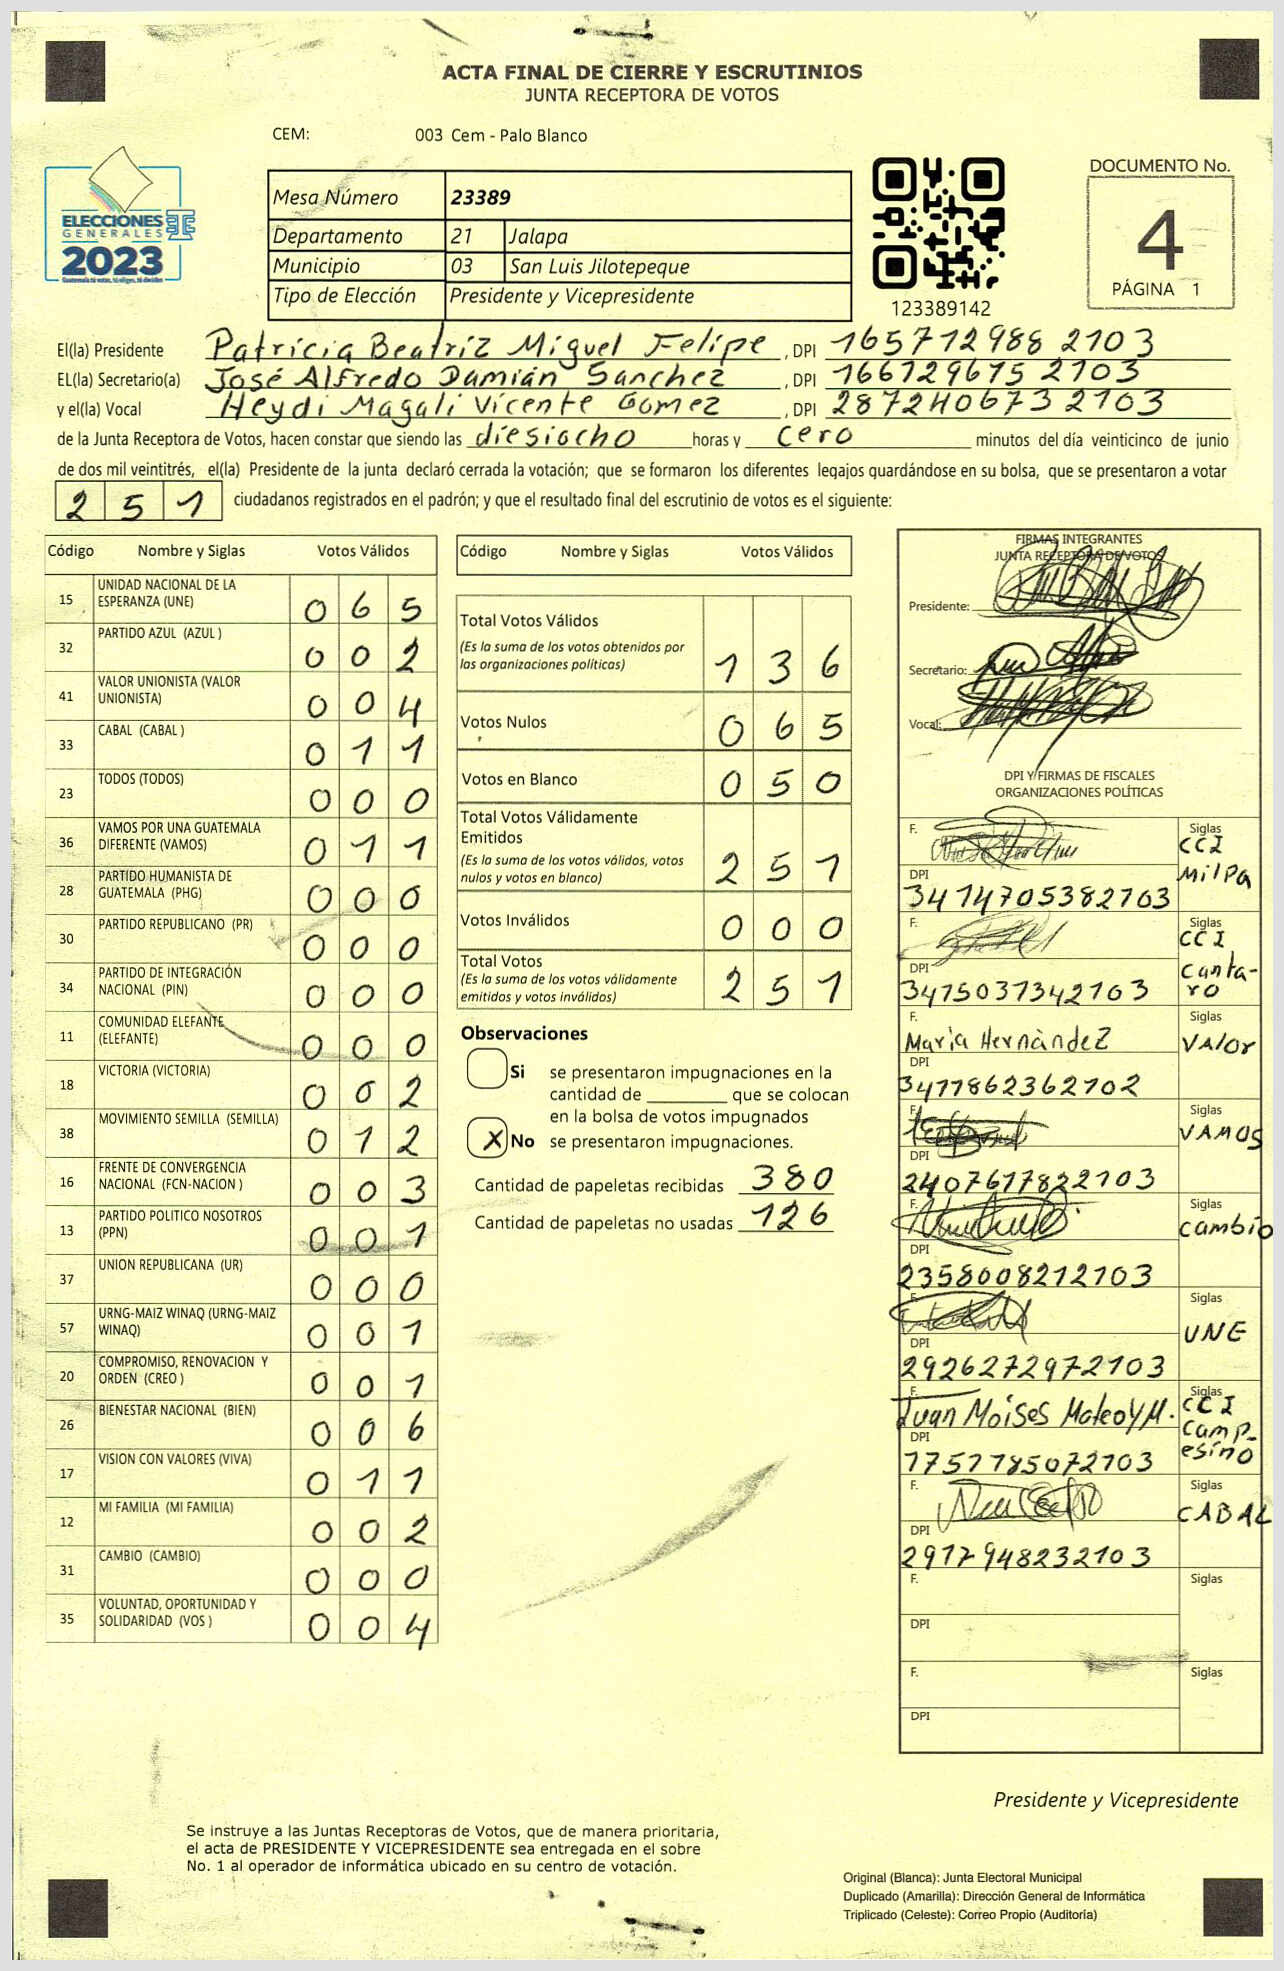 ACTA FINAL DE CIERRE Y ESCRUTINIOS
JUNTA RECEPTORA DE VOTOS
CEM: 003 Cem - Palo Blanco
ELECCIONES
GENERALES
2023
Mesa Número 23389
Departamento 21 Jalapa
Municipio 03 San Luis Jilotepeque
Tipo de Elección Presidente y Vicepresidente
123389142
DOCUMENTO No.
4
PÁGINA 1
El(la) Presidente Patricia Beatriz Miguel Felipe, DPI 165712988 2103
EL(la) Secretario(a) José Alfredo Damián Sanchez, DPI 166129615 2103
y el(la) Vocal Heydi Magali Vicente Gomez, DPI 287240673 2103
de la Junta Receptora de Votos, hacen constar que siendo las diesiocho horas y cero minutos del día veinticinco de junio
de dos mil veintitrés, el(la) Presidente de la junta declaró cerrada la votación; que se formaron los diferentes legajos guardándose en su bolsa, que se presentaron a votar
251 ciudadanos registrados en el padrón; y que el resultado final del escrutinio de votos es el siguiente:
Código Nombre y Siglas Votos Válidos
15 UNIDAD NACIONAL DE LA ESPERANZA (UNE) 065
32 PARTIDO AZUL (AZUL ) 002
41 VALOR UNIONISTA (VALOR UNIONISTA) 004
33 CABAL (CABAL ) 011
23 TODOS (TODOS) 000
36 VAMOS POR UNA GUATEMALA DIFERENTE (VAMOS) 011
28 PARTIDO HUMANISTA DE GUATEMALA (PHG) 000
30 PARTIDO REPUBLICANO (PR) 000
34 PARTIDO DE INTEGRACIÓN NACIONAL (PIN) 000
11 COMUNIDAD ELEFANTE (ELEFANTE) 000
18 VICTORIA (VICTORIA) 002
38 MOVIMIENTO SEMILLA (SEMILLA) 012
16 FRENTE DE CONVERGENCIA NACIONAL (FCN-NACION ) 003
13 PARTIDO POLITICO NOSOTROS (PPN) 001
37 UNION REPUBLICANA (UR) 000
57 URNG-MAIZ WINAQ (URNG-MAIZ WINAQ) 001
20 COMPROMISO, RENOVACION Y ORDEN (CREO ) 001
26 BIENESTAR NACIONAL (BIEN) 006
17 VISION CON VALORES (VIVA) 011
12 MI FAMILIA (MI FAMILIA) 002
31 CAMBIO (CAMBIO) 000
35 VOLUNTAD, OPORTUNIDAD Y SOLIDARIDAD (VOS ) 004
Código Nombre y Siglas Votos Válidos
Total Votos Válidos
(Es la suma de los votos obtenidos por
las organizaciones políticas) 136
Votos Nulos 065
Votos en Blanco 050
Total Votos Válidamente
Emitidos
(Es la suma de los votos válidos, votos
nulos y votos en blanco) 251
Votos Inválidos 000
Total Votos
(Es la suma de los votos válidamente
emitidos y votos inválidos) 251
Observaciones
Si se presentaron impugnaciones en la
cantidad de ________ que se colocan
en la bolsa de votos impugnados
X No se presentaron impugnaciones.
Cantidad de papeletas recibidas 380
Cantidad de papeletas no usadas 126
FIRMAS INTEGRANTES
JUNTA RECEPTORA DE VOTOS
Presidente:
Secretario:
Vocal:
DPI Y FIRMAS DE FISCALES
ORGANIZACIONES POLÍTICAS
F. Siglas CCI Milpa
DPI 3414705382103
F. Siglas CCI Cantaro
DPI 3475037342103
F. María Hernández Siglas VALOR
DPI 3477862362102
F. Siglas VAMOS
DPI 2407617822103
F. Siglas Cambio
DPI 2358008212103
F. Siglas UNE
DPI 2926272972103
F. Juan Moises Mateo y M. Siglas CCI Campesino
DPI 1751785072103
F. Siglas CABAL
DPI 2917948232103
F. Siglas
DPI
F. Siglas
DPI
Presidente y Vicepresidente
Se instruye a las Juntas Receptoras de Votos, que de manera prioritaria,
el acta de PRESIDENTE Y VICEPRESIDENTE sea entregada en el sobre
No. 1 al operador de informática ubicado en su centro de votación.
Original (Blanca): Junta Electoral Municipal
Duplicado (Amarilla): Dirección General de Informática
Triplicado (Celeste): Correo Propio (Auditoría)